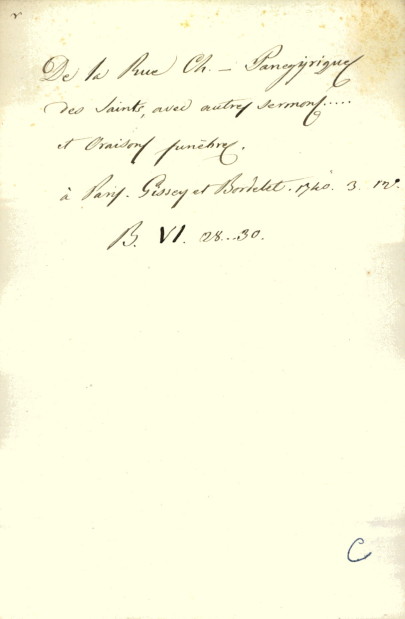 De la Rue Ch. — Panegÿriques
des Saints, avec autres sermons.....
et Oraisons funèbres.
à Paris. Gissey et Bordelet. 1740. 3. 12°.
B. VI. 28..30.
C